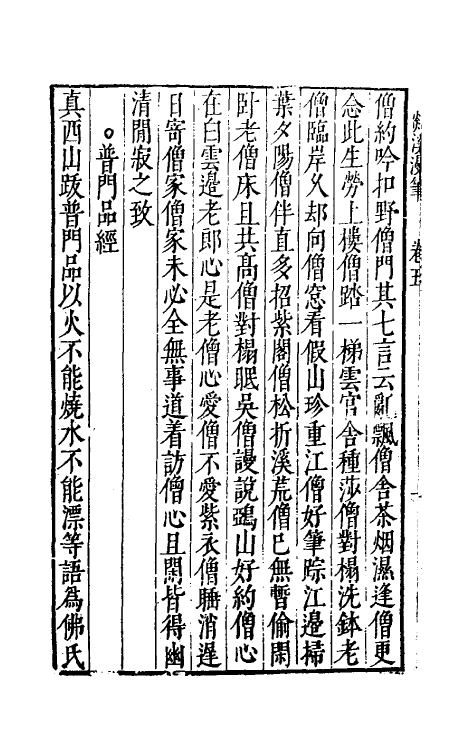 僧約吟扣野僧門其七言云亂飄僧舍茶烟濕逢僧更
念此生勞上樓僧踏一梯雲官舍種莎僧對榻洗鉢老
僧臨岸久却向僧窓看假山珍重江僧好筆踪江邉掃
葉夕陽僧伴直多招紫閣僧松折溪荒僧已無暫偷閑
卧老僧床且共髙僧對榻眠吳僧謾說鵶山好約僧心
在白雲邉老郎心是老僧心愛僧不愛紫衣僧睡消遅
日寄僧家僧家未必全無事道着訪僧心且閑皆得幽
清閒寂之致
。普門品經
真西山跋普門品以火不能燒水不能漂等語為佛氏
漫筆
卷五